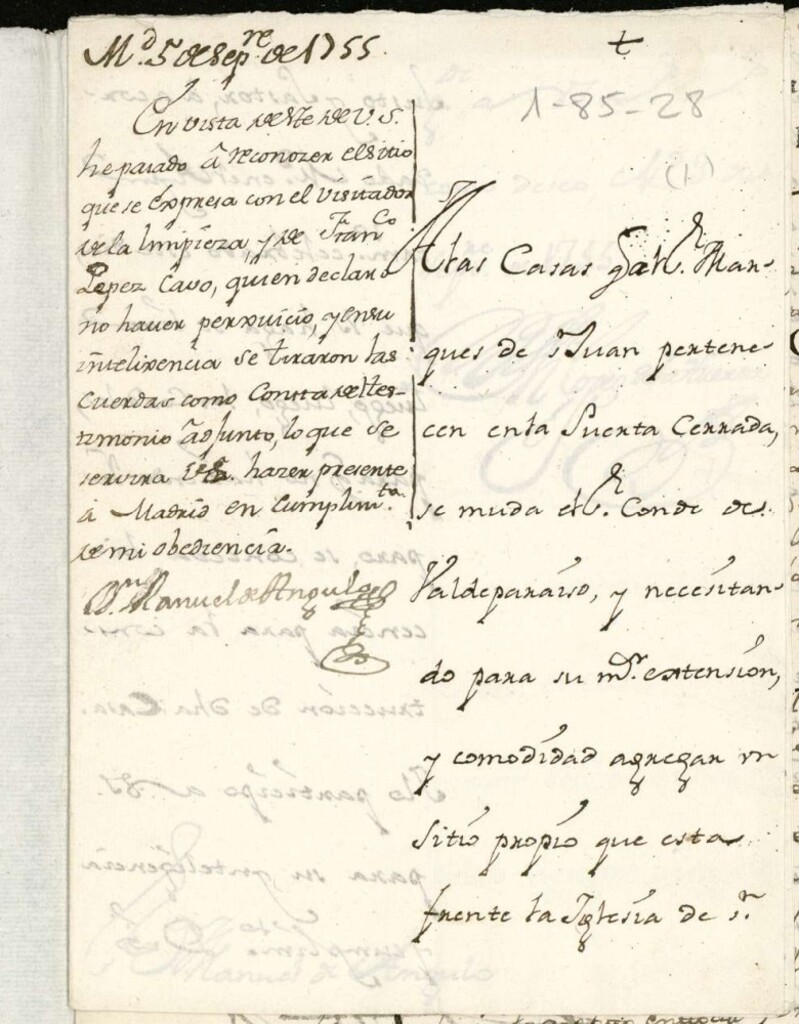 M.d 5 de Sep.re de 1755.
+
1-85-28
(1)
En vista de este de V. S.
he pasado â reconozer el sitio
que se expresa con el visitador
de la limpieza, y de Fran.co
Lopez Cavo, quien declaro
no haver perxuicio, y en su
intelixencia se tiraron las
cuerdas como consta del tes-
timonio adjunto, lo que se
servira V.S. hazer presente
â Madrid en cumplim.to
de mi obediencia.
D.n Manuel de Angulo
A las Casas q.e al S.r Mar-
ques de S.n Juan pertene-
cen en la Puerta Cerrada,
se muda el S.r Conde de
Valdeparaiso, y necesitan-
do para su m.or extension,
y comodidad agregar un
sitio propio que esta
frente la Iglesia de S.n